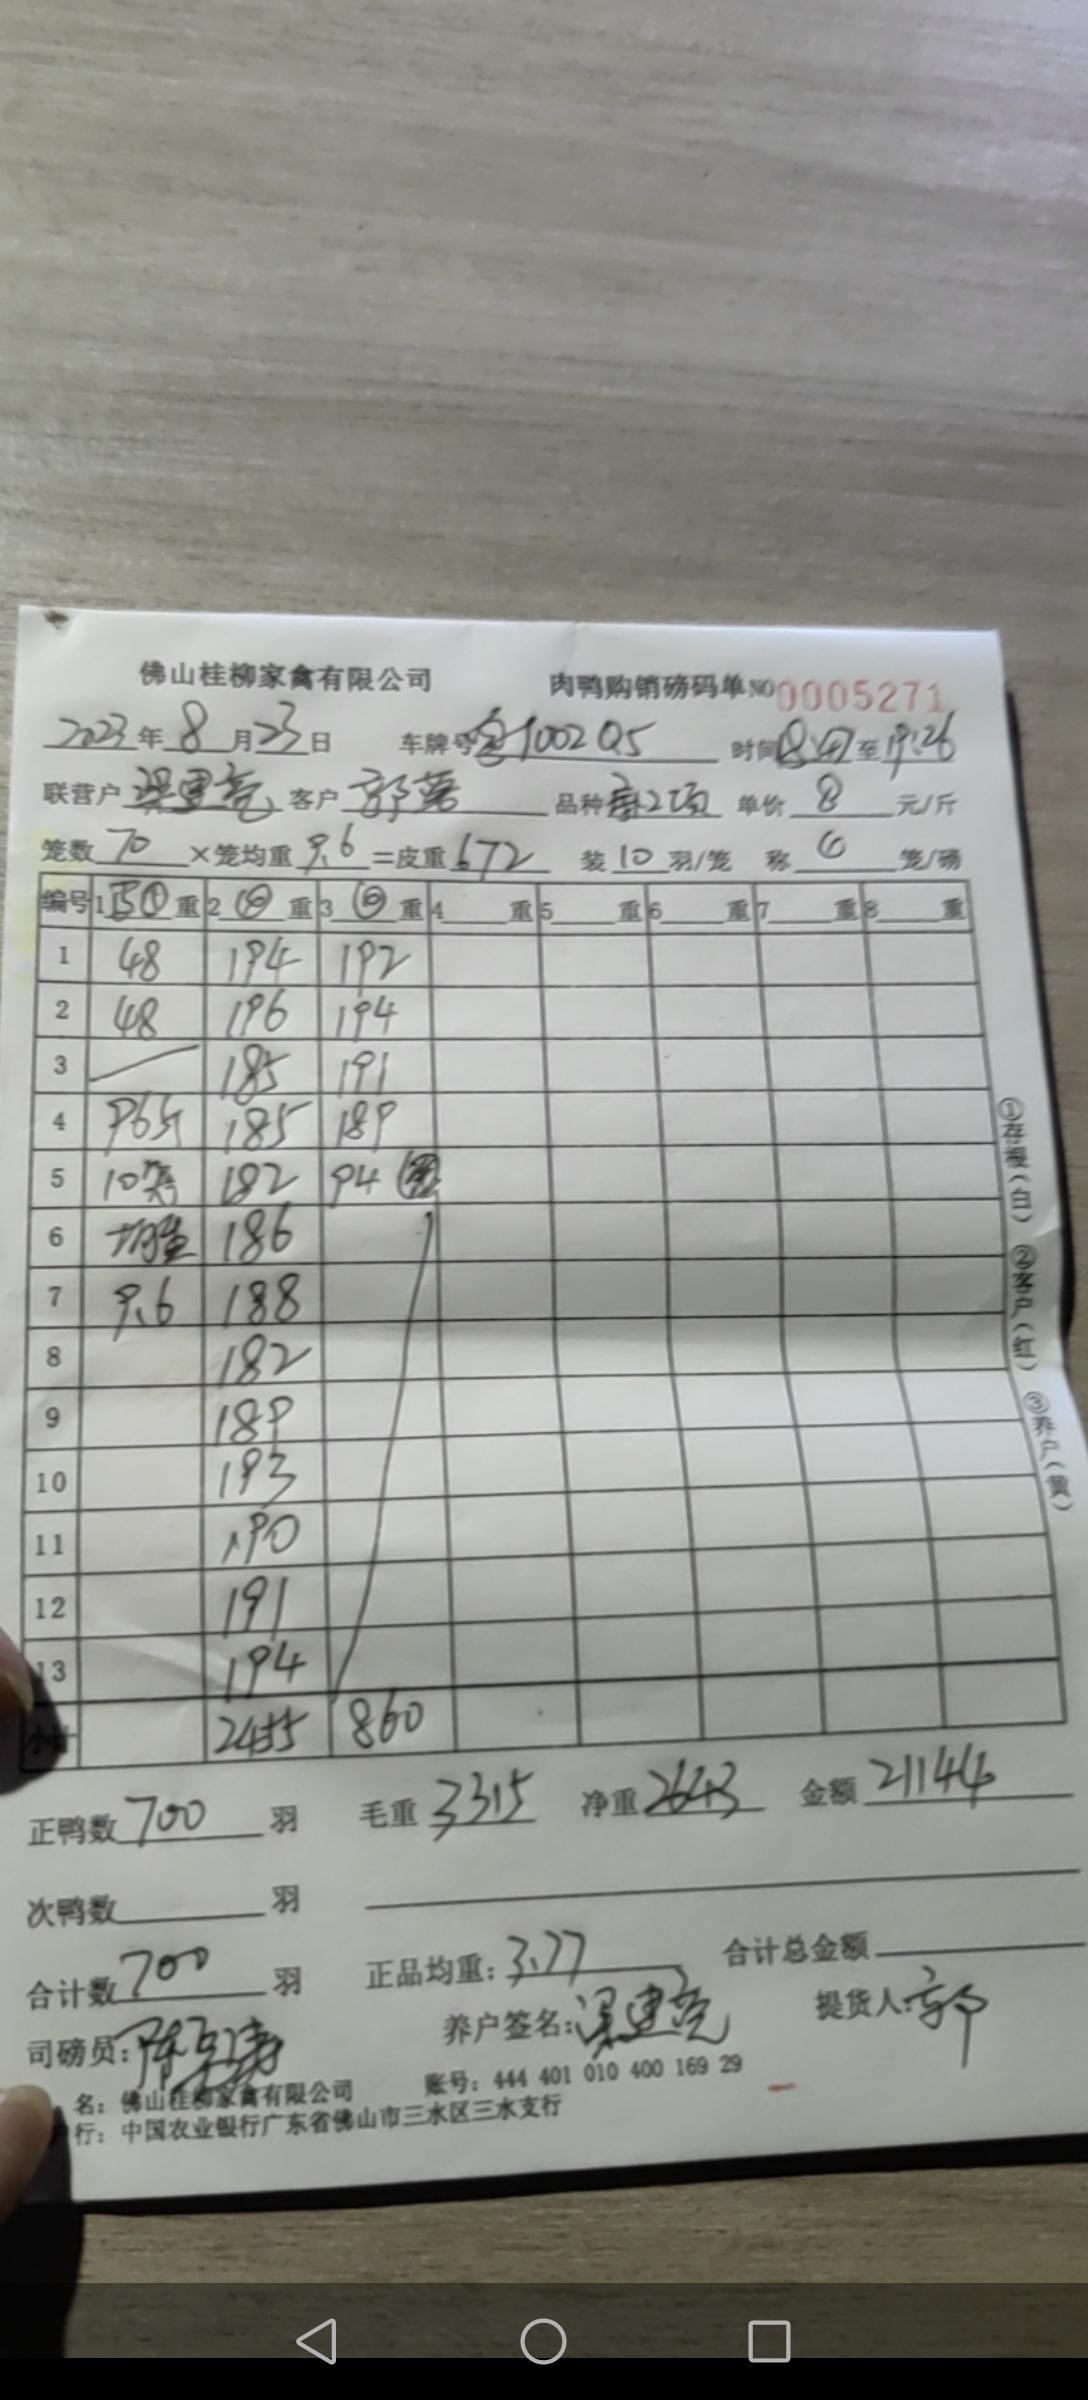 佛山桂柳家禽有限公司 肉鸭购销磅码单 NO 0005271
2023年8月23日 车牌号 100205 时间 至19:26
联营户 梁建亮 客户 郭 品种 单价 8 元/斤
笼数 70 ×笼均重 9.6 =皮重 672 装 10 羽/笼 称 笼/磅
编号 1 重 2 重 3 重 4 重 5 重 6 重 7 重 8 重
1 48 194 192
2 48 196 194
3 185 191
4 96斤 185 189
5 10笼 182 94
6 均重 186
7 9.6 188
8 182
9 189
10 193
11 190
12 191
13 194
小计 2455 860
正鸭数 700 羽 毛重 3315 净重 2643 金额 21144
次鸭数 羽
合计数 700 羽 正品均重：3.77 合计总金额
司磅员：陈 养户签名：梁建亮 提货人：郭
名：佛山桂柳家禽有限公司 账号：444 401 010 400 169 29
行：中国农业银行广东省佛山市三水区三水支行
①存根（白） ②客户（红） ③养户（黄）